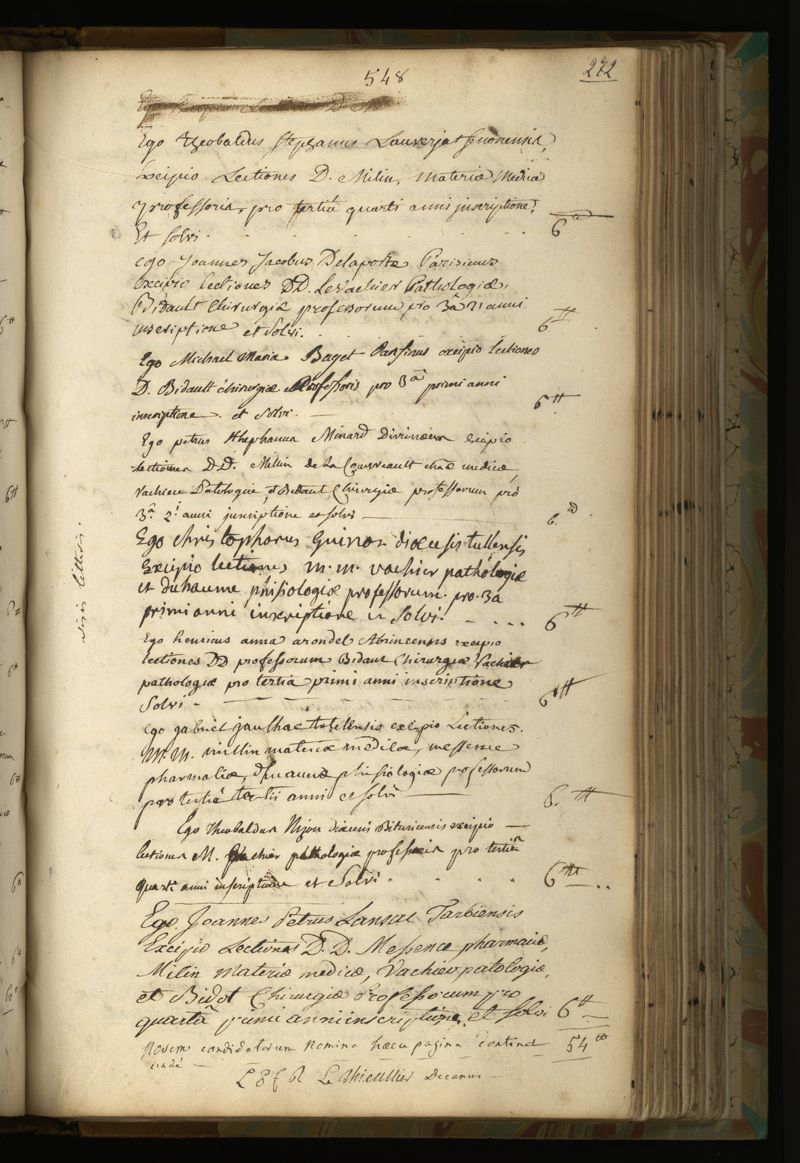 548
222
Ego Theobaldus Stephanus Lauverjat
Excipio Lectiones D. Milin, Materiæ Medicæ
professoris, pro tertiâ quarti anni inscriptione.
Et solvi . . . . 6
Ego Joannes Jacobus Delaporte Parisinus
excipio lectiones DD. LeVachier Pathologiæ,
Bidault Chirurgiæ professorum pro 3â 2i anni
inscriptione et solvi. 6tt
Ego Michael Maria Baget Parisinus excipio Lectiones
D. Bidault chirurgiæ Professoris pro 3â primi anni
inscriptione et solvi. — 6tt
Ego petrus Stephanus Minard excipio
Lectiones D.D. Millin De La Courveault medicæ,
vachier Patologiæ, Bidaut Chirurgiæ professorum pro
3â 2i anni inscriptione et solvi — 6
Ego christophorus Guinon diœcesis tullensis
Excipio lectiones m. m. vachier pathologiæ
et duhaume phisiologiæ professorum. pro. 3a
primi anni inscriptione et solvi. - . . . . 6tt
Ego henricus anna arondel Abrincensis excipio
lectiones DD professorum Bidaut Chirurgiæ Vachier
pathologiæ pro tertiâ primi anni inscriptione
Solvi - 6tt
Ego gabriel excipio Lectiones.
M. M. millin materiæ medicæ, messence
pharmaciæ, phisiologiæ professorum
pro tertiâ tertii anni et solvi — 6.tt
Ego Theobaldus Nizon Bituricensis excipio —
lectiones M. vachier pathologiæ professoris pro tertiâ
quarti anni inscriptione et Solvi . . . . 6tt
Ego Joannes Petrus Lansac Tarbiensis
Excipio Lectiones D. D. Messence pharmaciæ,
Milin Materiæ medicæ, Vachier patologiæ,
et Bidot Chirurgiæ Professorum pro
quartâ primi anni inscriptione et solvi 6tt
Novem candidatorum Nomina hæcce pagina continet 54
Le Thieullier Decanus